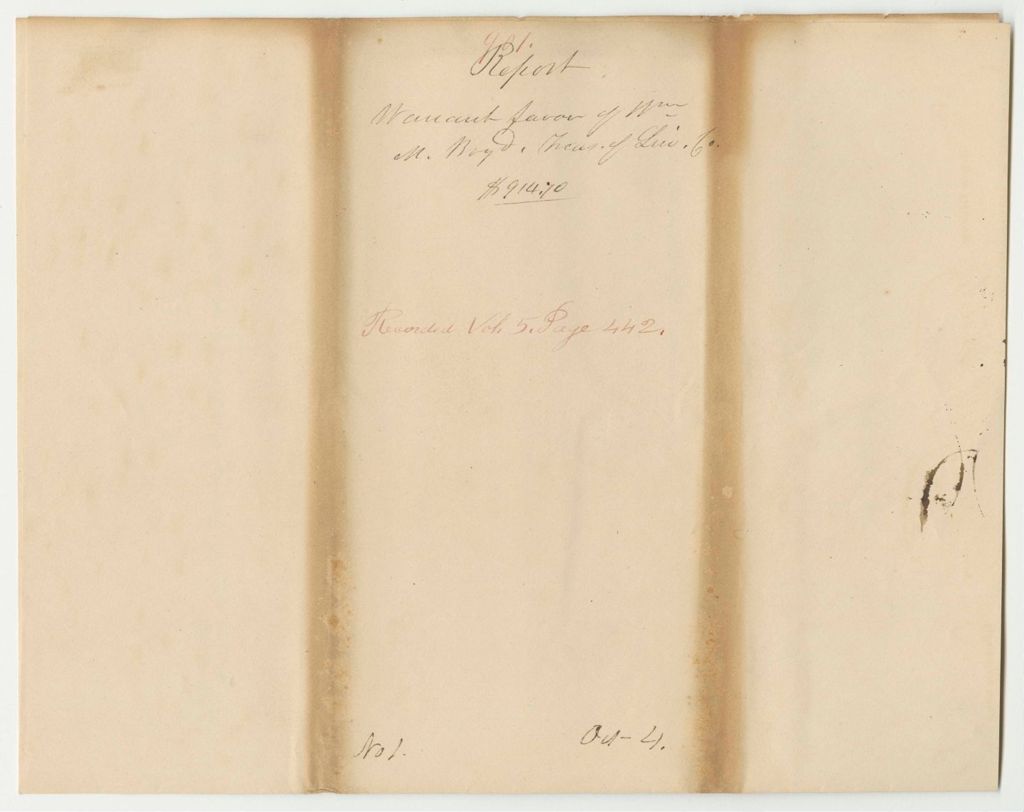 Report
Warrant favor of Wm
M. Boyd, Treas. of Lin. Co.
$914.70
Recorded Vol. 5. Page 442.
No 1.
Oct 4.